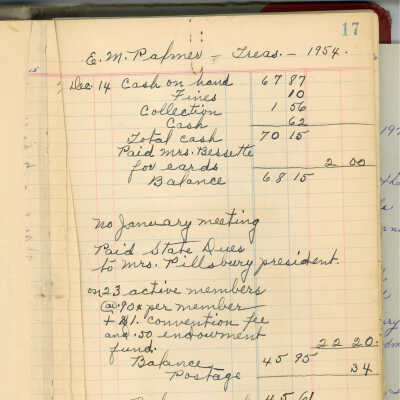 17
E. M. Palmer - Treas. - 1954.
Dec. 14 Cash on hand 67 87
Fines 10
Collection 1 56
Cash 62
Total cash 70 15
Paid Mrs. Bessette
for cards 2 00
Balance 68 15
No January meeting
Paid State Dues
to Mrs. Pillsbury president.
on 23 active members
@ .90¢ per member
+ $1. convention fee
and .50 endowment
fund. 22 20.
Balance 45 95
Postage 34
45 61